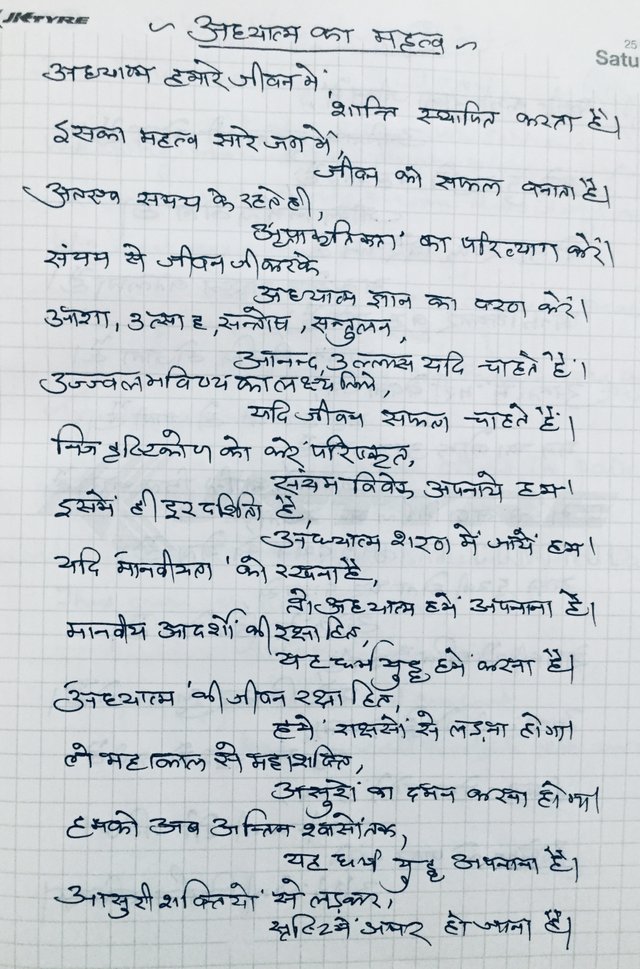 JKTYRE
25
Satu
~ अध्यात्म का महत्व ~
अध्यात्म हमारे जीवन में,
शान्ति स्थापित करता है।
इसका महत्व सारे जग में,
जीवन को सफल बनाता है।
अतएव समय के रहते ही,
अप्राकृतिकता का परित्याग करें।
संयम से जीवन जी करके
अध्यात्म ज्ञान का वरण करें।
आशा, उत्साह, सन्तोष, सन्तुलन,
आनन्द, उल्लास यदि चाहते हैं।
उज्ज्वल भविष्य का लक्ष्य लिये,
यदि जीवन सफल चाहते हैं।
निज दृष्टिकोण को करें परिष्कृत,
संयम विवेक अपनाये हम।
इसमें ही दूरदर्शिता है,
अध्यात्म शरण में जायें हम।
यदि मानवीयता को रखना है,
तो अध्यात्म हमें अपनाना है।
मानवीय आदर्शों की रक्षा हित,
यह धर्म युद्ध हमें करना है।
अध्यात्म की जीवन रक्षा हित,
हमें राक्षसों से लड़ना होगा।
ले महाकाल से महाशक्ति,
असुरों का दमन करना होगा।
हमको अब अन्तिम श्वासों तक,
यह धर्म युद्ध अपनाना है।
आसुरी शक्तियों से लड़कर,
सृष्टि में अमर हो जाना है।